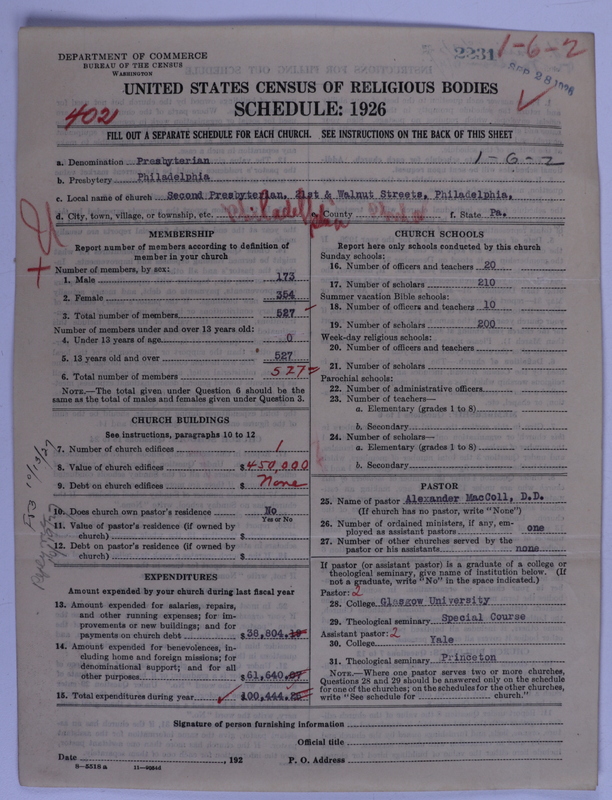 DEPARTMENT OF COMMERCE
BUREAU OF THE CENSUS
WASHINGTON
2231 1-6-2
SEP 28 1926
UNITED STATES CENSUS OF RELIGIOUS BODIES
SCHEDULE: 1926
402
FILL OUT A SEPARATE SCHEDULE FOR EACH CHURCH. SEE INSTRUCTIONS ON THE BACK OF THIS SHEET
a. Denomination Presbyterian 1-6-2
b. Presbytery Philadelphia
c. Local name of church Second Presbyterian, 21st & Walnut Streets, Philadelphia,
d. City, town, village, or township, etc. Philadelphia e. County f. State Pa.
MEMBERSHIP
Report number of members according to definition of
member in your church
Number of members, by sex:
1. Male 173
2. Female 354
3. Total number of members 527
Number of members under and over 13 years old:
4. Under 13 years of age 0
5. 13 years old and over 527
6. Total number of members 527
NOTE.—The total given under Question 6 should be the
same as the total of males and females given under Question 3.
CHURCH BUILDINGS
See instructions, paragraphs 10 to 12
7. Number of church edifices 1
8. Value of church edifices $450,000
9. Debt on church edifices $ None
10. Does church own pastor's residence? No
Yes or No
11. Value of pastor's residence (if owned by
church) $
12. Debt on pastor's residence (if owned by
church) $
EXPENDITURES
Amount expended by your church during last fiscal year
13. Amount expended for salaries, repairs,
and other running expenses; for im-
provements or new buildings; and for
payments on church debt $38,804.
14. Amount expended for benevolences, in-
cluding home and foreign missions; for
denominational support; and for all
other purposes $61,640.
15. Total expenditures during year 100,444.
CHURCH SCHOOLS
Report here only schools conducted by this church
Sunday schools:
16. Number of officers and teachers 20
17. Number of scholars 210
Summer vacation Bible schools:
18. Number of officers and teachers 10
19. Number of scholars 200
Week-day religious schools:
20. Number of officers and teachers
21. Number of scholars
Parochial schools:
22. Number of administrative officers
23. Number of teachers—
a. Elementary (grades 1 to 8)
b. Secondary
24. Number of scholars—
a. Elementary (grades 1 to 8)
b. Secondary
PASTOR
25. Name of pastor Alexander MacColl, D.D.
(If church has no pastor, write "None")
26. Number of ordained ministers, if any, em-
ployed as assistant pastors one
27. Number of other churches served by the
pastor or his assistants none
If pastor (or assistant pastor) is a graduate of a college or
theological seminary, give name of institution below. (If
not a graduate, write "No" in the space indicated.)
Pastor: 2
28. College Glasgow University
29. Theological seminary Special Course
Assistant pastor: 2
30. College Yale
31. Theological seminary Princeton
NOTE.—Where one pastor serves two or more churches,
Questions 28 and 29 should be answered only on the schedule
for one of the churches; on the schedules for the other churches,
write "See schedule for church."
Signature of person furnishing information
Official title
Date , 192 P. O. Address
8—5518 a